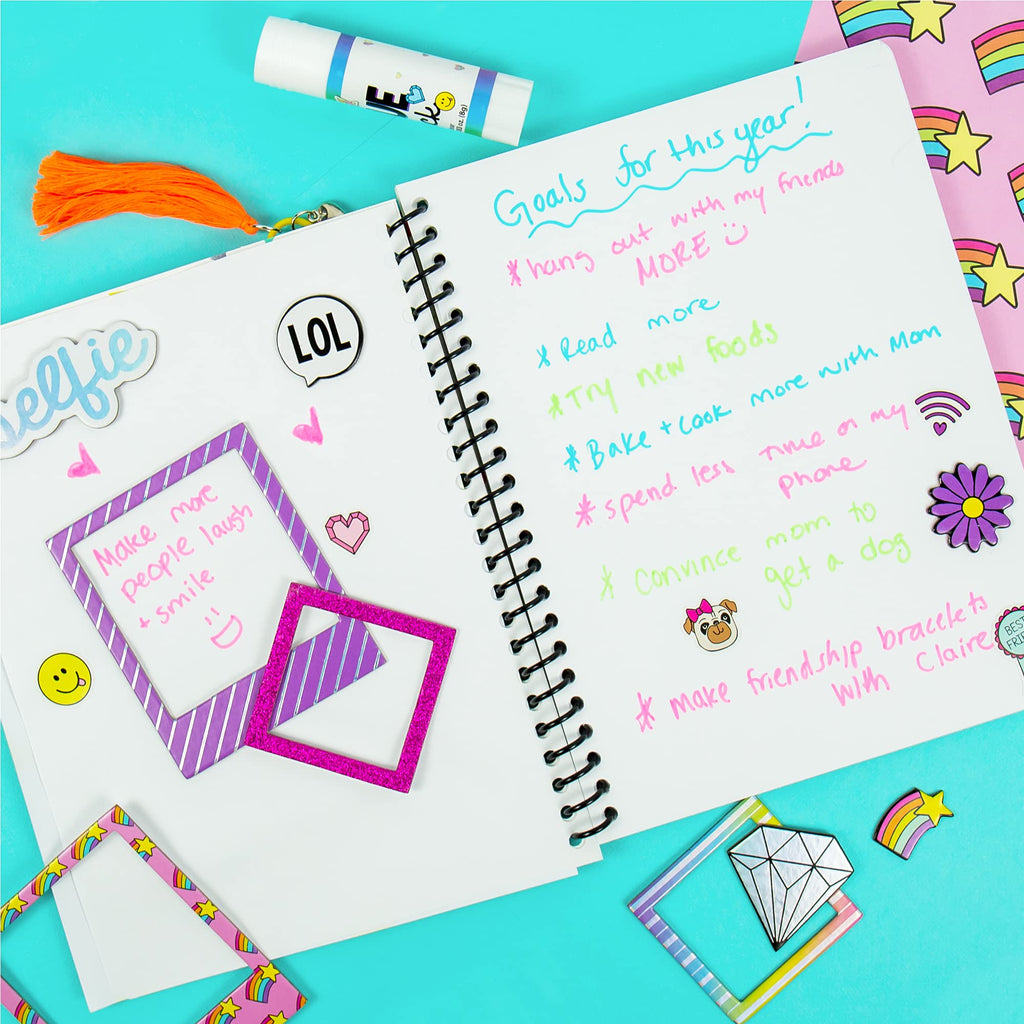 selfie
LOL
Make more
people laugh
+ smile
Goals for this year!
* hang out with my friends
MORE
* Read more
* Try new foods
* Bake + Cook more with Mom
* spend less time on my
phone
* Convince mom to
get a dog
* make friendship bracelets
with Claire
BEST